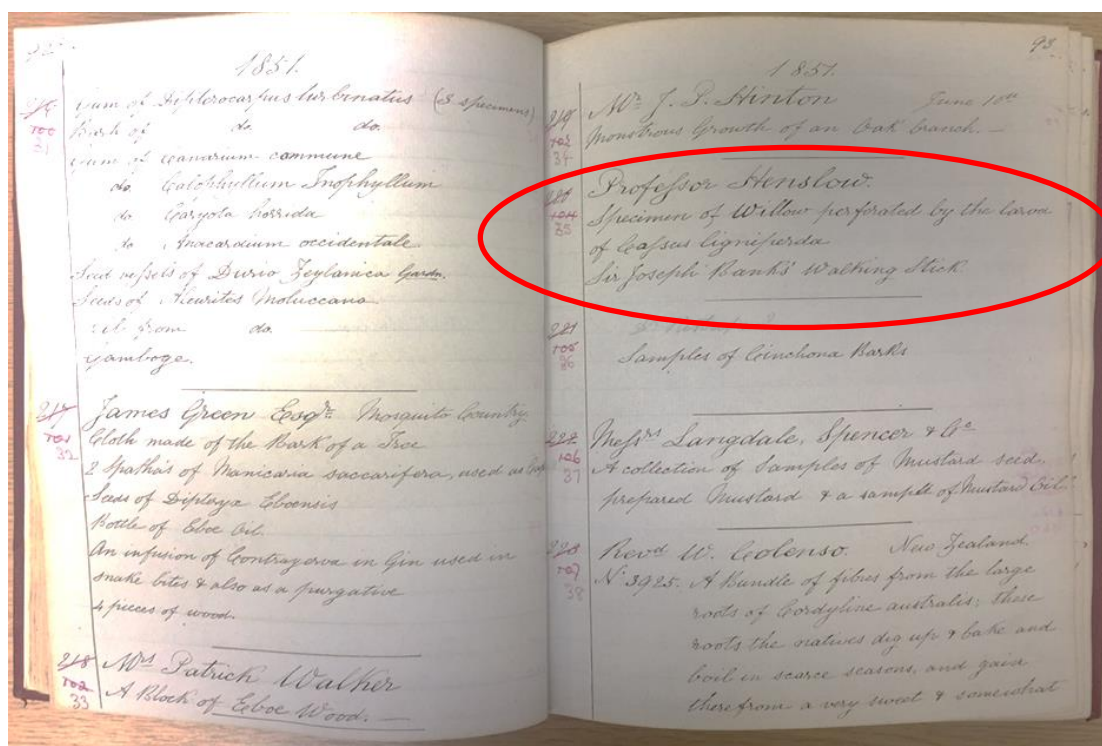 92
1851.
216
100
31
Gum of Dipterocarpus turbinatus (3 specimens)
Bark of do. do.
Gum of Canarium commune
do. Calophyllum Inophyllum
do Caryota horrida
do Anacardium occidentale
Seed vessels of Durio Zeylanica Gardn.
Seeds of Aleurites Moluccana
Oil from do.
Gamboge.
217
101
32
James Green Esqre Mosquito Country.
Cloth made of the Bark of a Tree
2 Spatha's of Manicaria saccarifera, used as
Seeds of Dipteryx Eboensis
Bottle of Eboe Oil.
An infusion of Contrayerva in Gin used in
snake bites & also as a purgative
4 pieces of wood.
218
102
33
Mrs Patrick Walker
A Block of Eboe Wood.
93
1851.
219
103
34
Mr J. P. Hinton June 10th
Monstrous Growth of an Oak branch.
220
104
35
Professor Henslow.
Specimen of Willow perforated by the larva
of Cossus ligniperda
Sir Joseph Banks' Walking Stick.
221
105
36
Samples of Cinchona Barks
222
106
37
Messrs Langdale, Spencer & Co
A collection of Samples of Mustard seed,
prepared Mustard & a sample of Mustard Oil.
223
107
38
Revd W. Colenso. New Zealand
No 3925. A Bundle of fibres from the large
roots of Cordyline australis; these
roots the natives dig up & bake and
boil in scarce seasons, and gain
therefrom a very sweet & somewhat